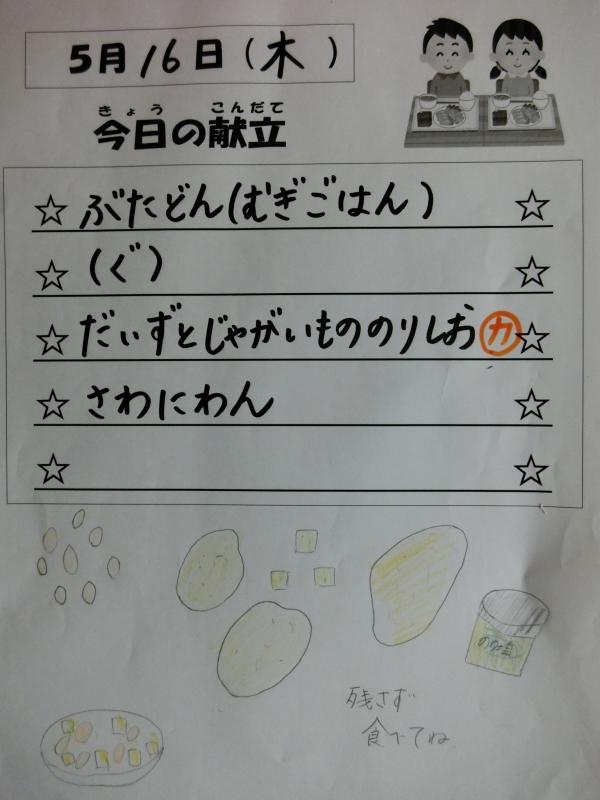 5月16日(木)
きょう こんだて
今日の献立
☆ ぶたどん(むぎごはん) ☆
☆ (ぐ) ☆
☆ だいずとじゃがいもののりしお カ ☆
☆ さわにわん ☆
☆ ☆
のり塩
残さず
食べてね